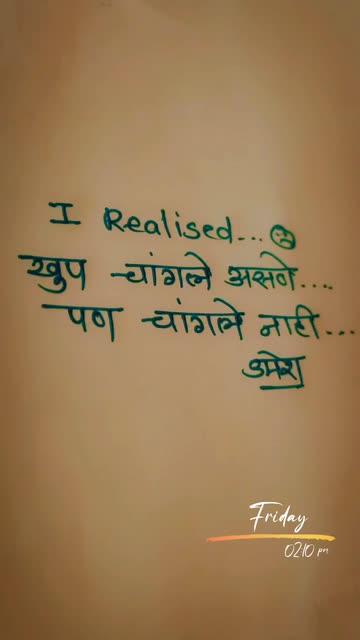 I Realised... 
खुप चांगले असणे....
पण चांगले नाही...
उमेश
Friday
02:10 pm